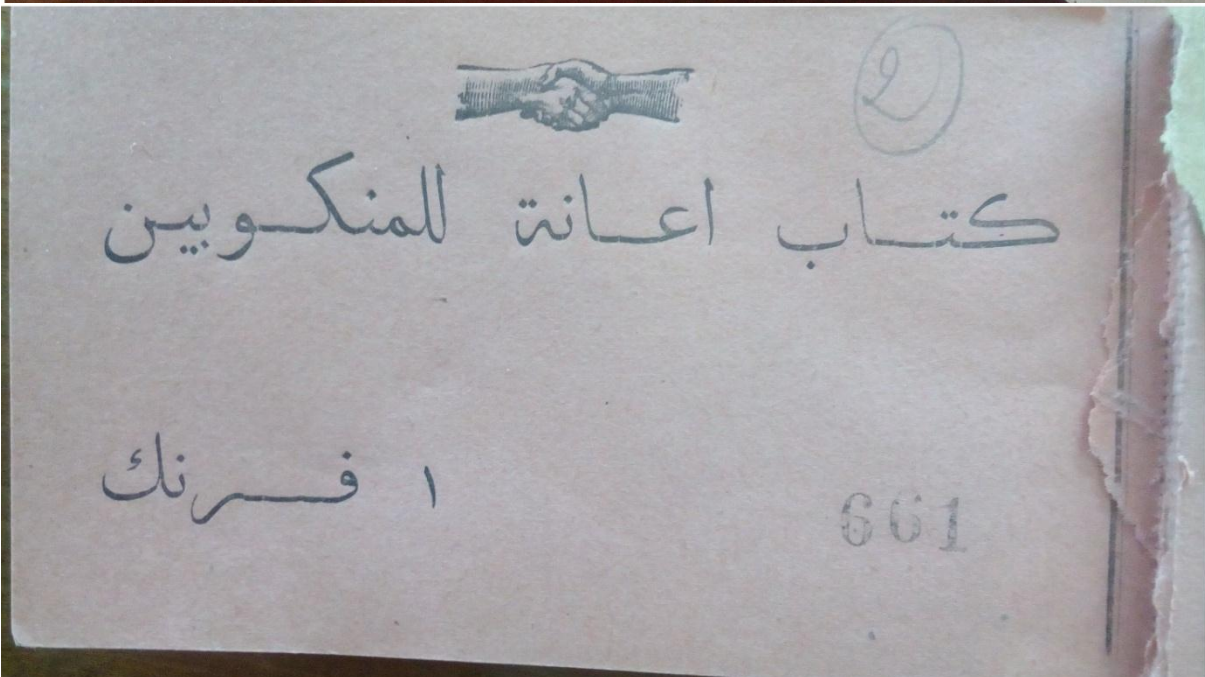 2
كتاب اعانة للمنكوبين
١ فرنك
661